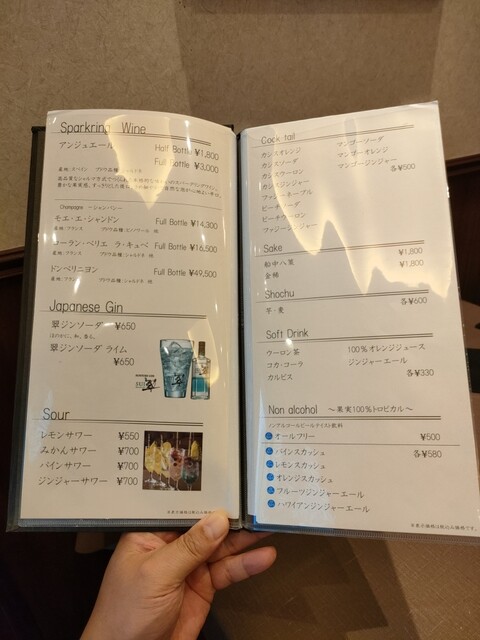 Sparkring Wine
アンジュエール Half Bottle ¥1,800
Full Bottle ¥3,000
Champagne ～シャンパン～
モエ・エ・シャンドン Full Bottle ¥14,300
ローラン・ペリエ ラ・キュベ Full Bottle ¥16,500
ドンペリニヨン Full Bottle ¥49,500
Japanese Gin
翠ジンソーダ ¥650
翠ジンソーダ ライム
¥650
翠
Sour
レモンサワー ¥550
みかんサワー ¥700
パインサワー ¥700
ジンジャーサワー ¥700
Cock tail
カシスオレンジ マンゴーソーダ
カシスソーダ マンゴーオレンジ
カシスウーロン マンゴージンジャー 各¥500
カシスジンジャー
ファジーネーブル
ピーチソーダ
ピーチウーロン
ファジージンジャー
Sake
船中八策 ¥1,800
金鵄 ¥1,800
Shochu
芋・麦 各¥600
Soft Drink
ウーロン茶 100%オレンジジュース
コカ・コーラ ジンジャーエール
カルピス 各¥330
Non alcohol ～果実100%トロピカル～
ノンアルコールビールテイスト飲料
オールフリー ¥500
パインスカッシュ 各¥580
レモンスカッシュ
オレンジスカッシュ
フルーツジンジャーエール
ハワイアンジンジャーエール
※表示価格は税込価格です。